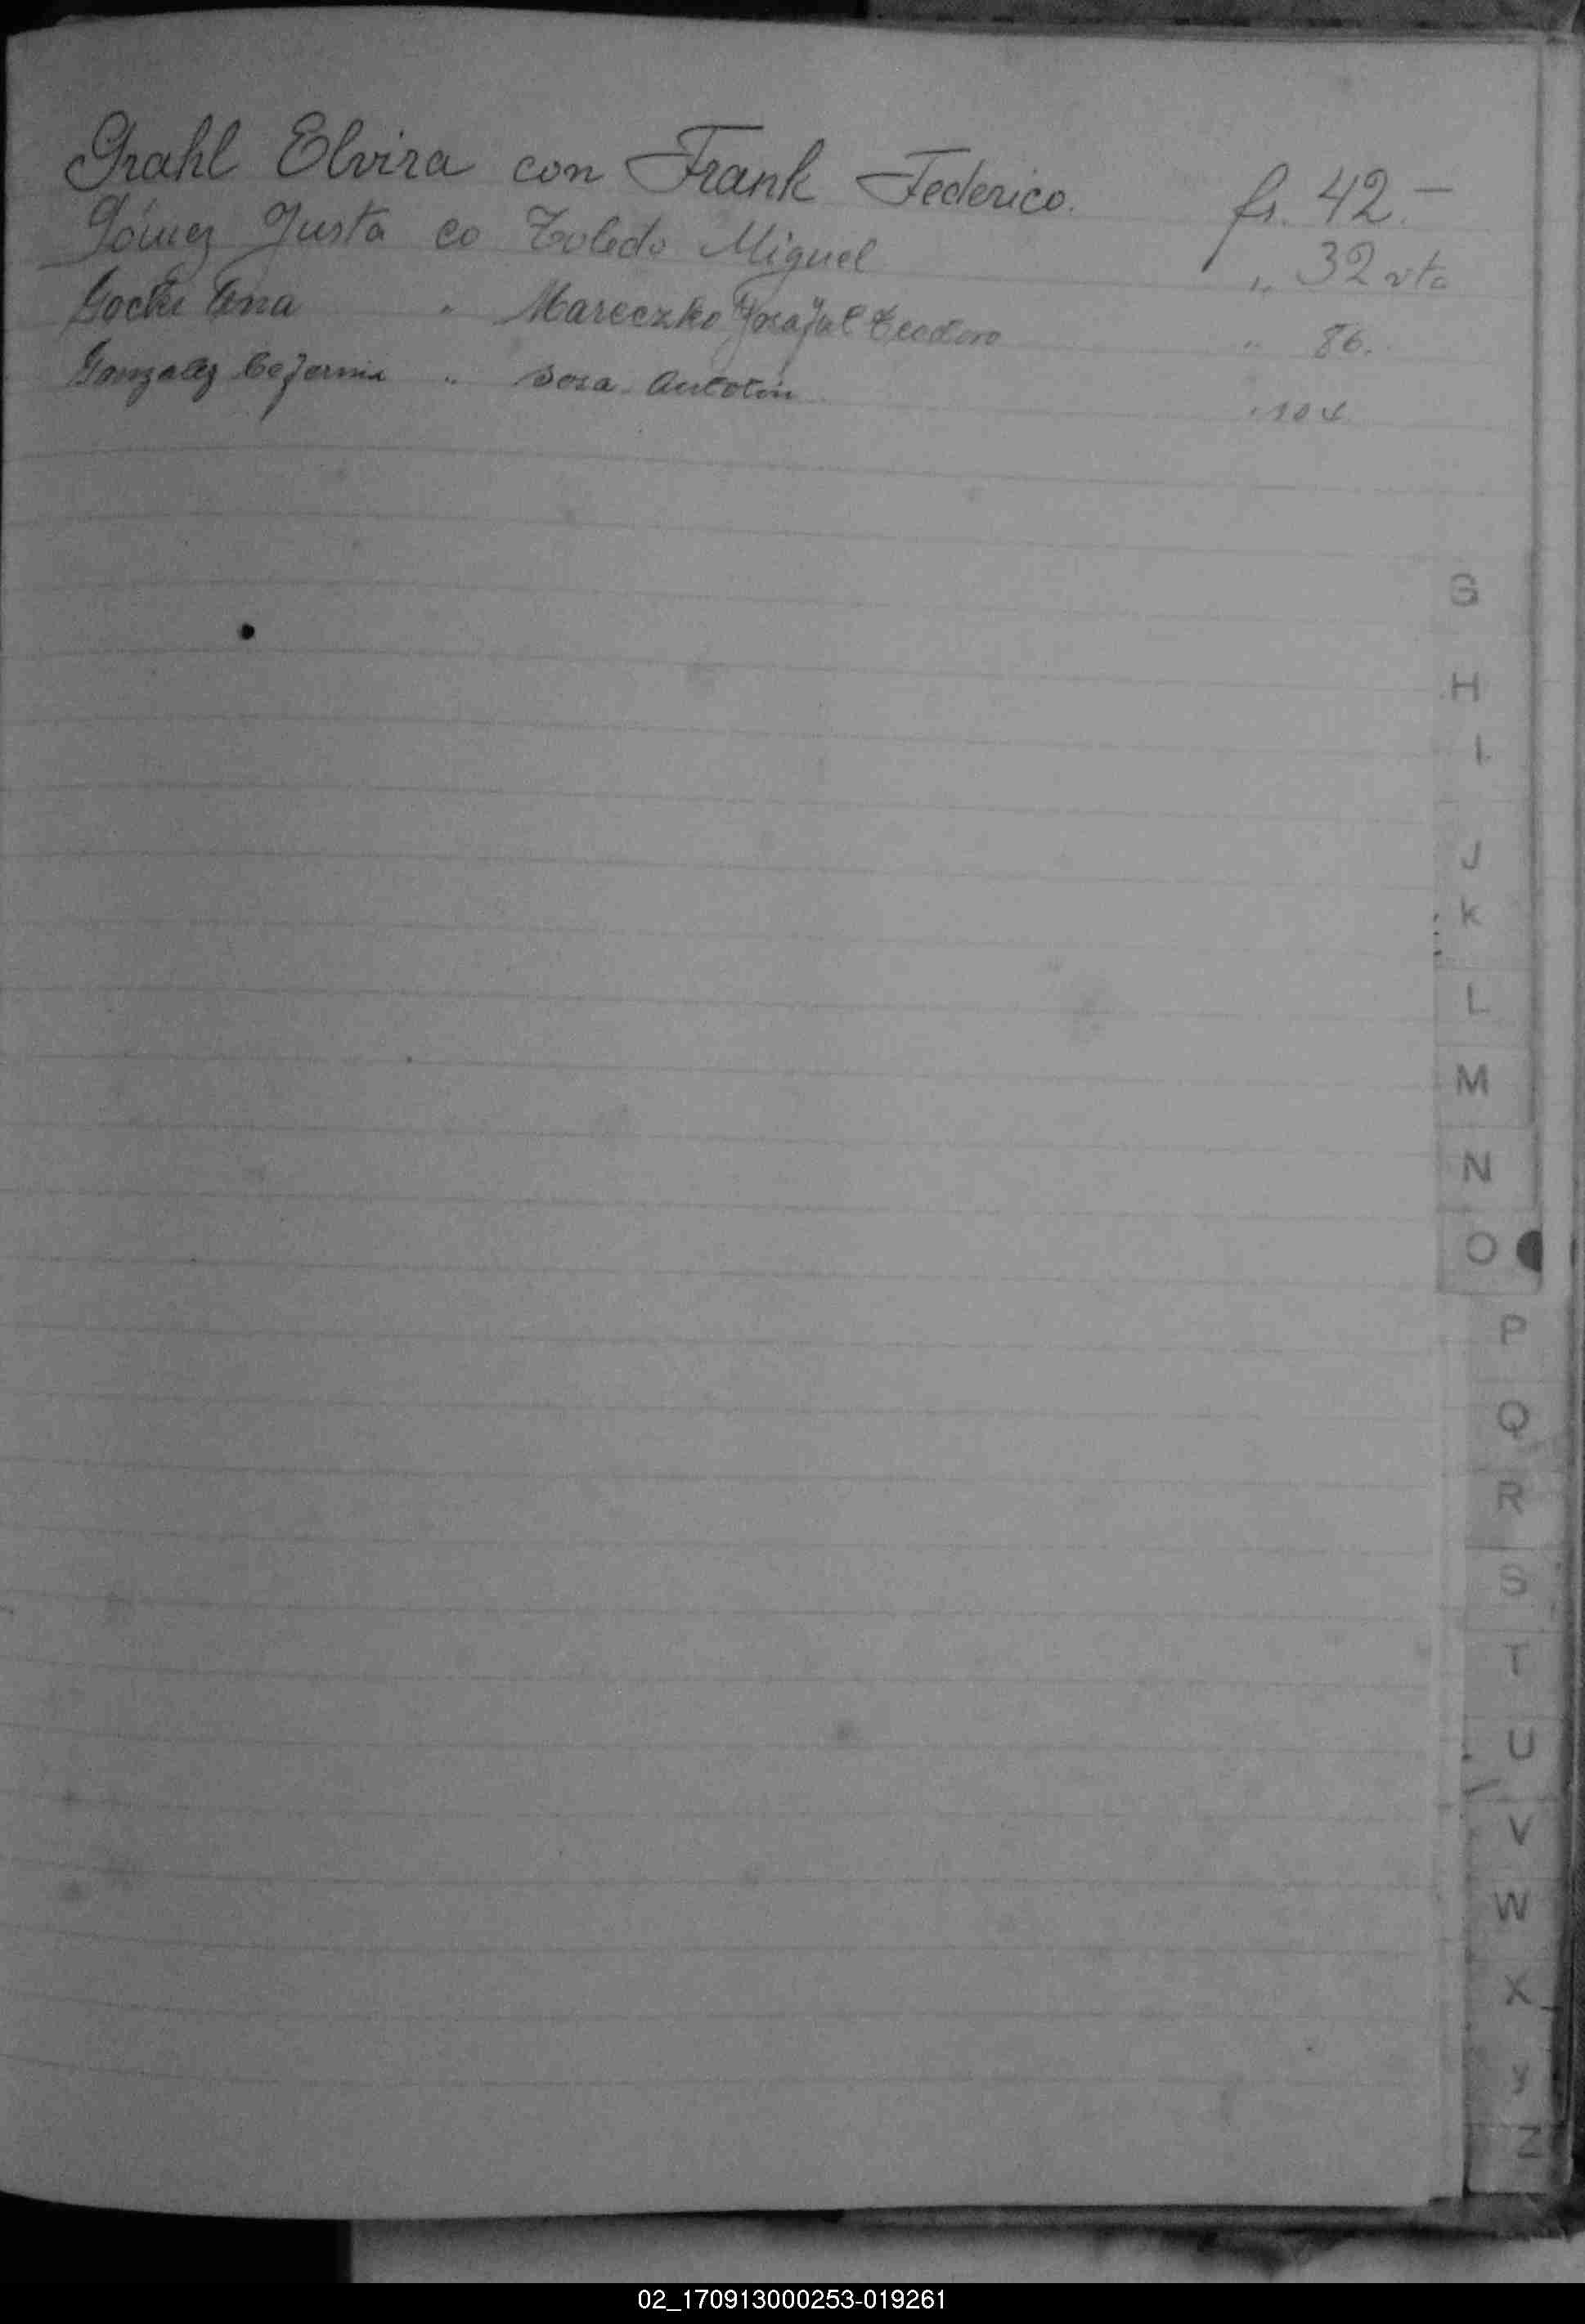 Grahl Elvira con Frank Federico. fs. 42.—
Gómez Justa co Toledo Miguel ,, 32 vta
Ana " Mareczko Teodoro " 86.
Gonzalez Ceferina " Sosa " 104
G
H
I
J
K
L
M
N
O
P
Q
R
S
T
U
V
W
X
Y
Z
02_170913000253-019261